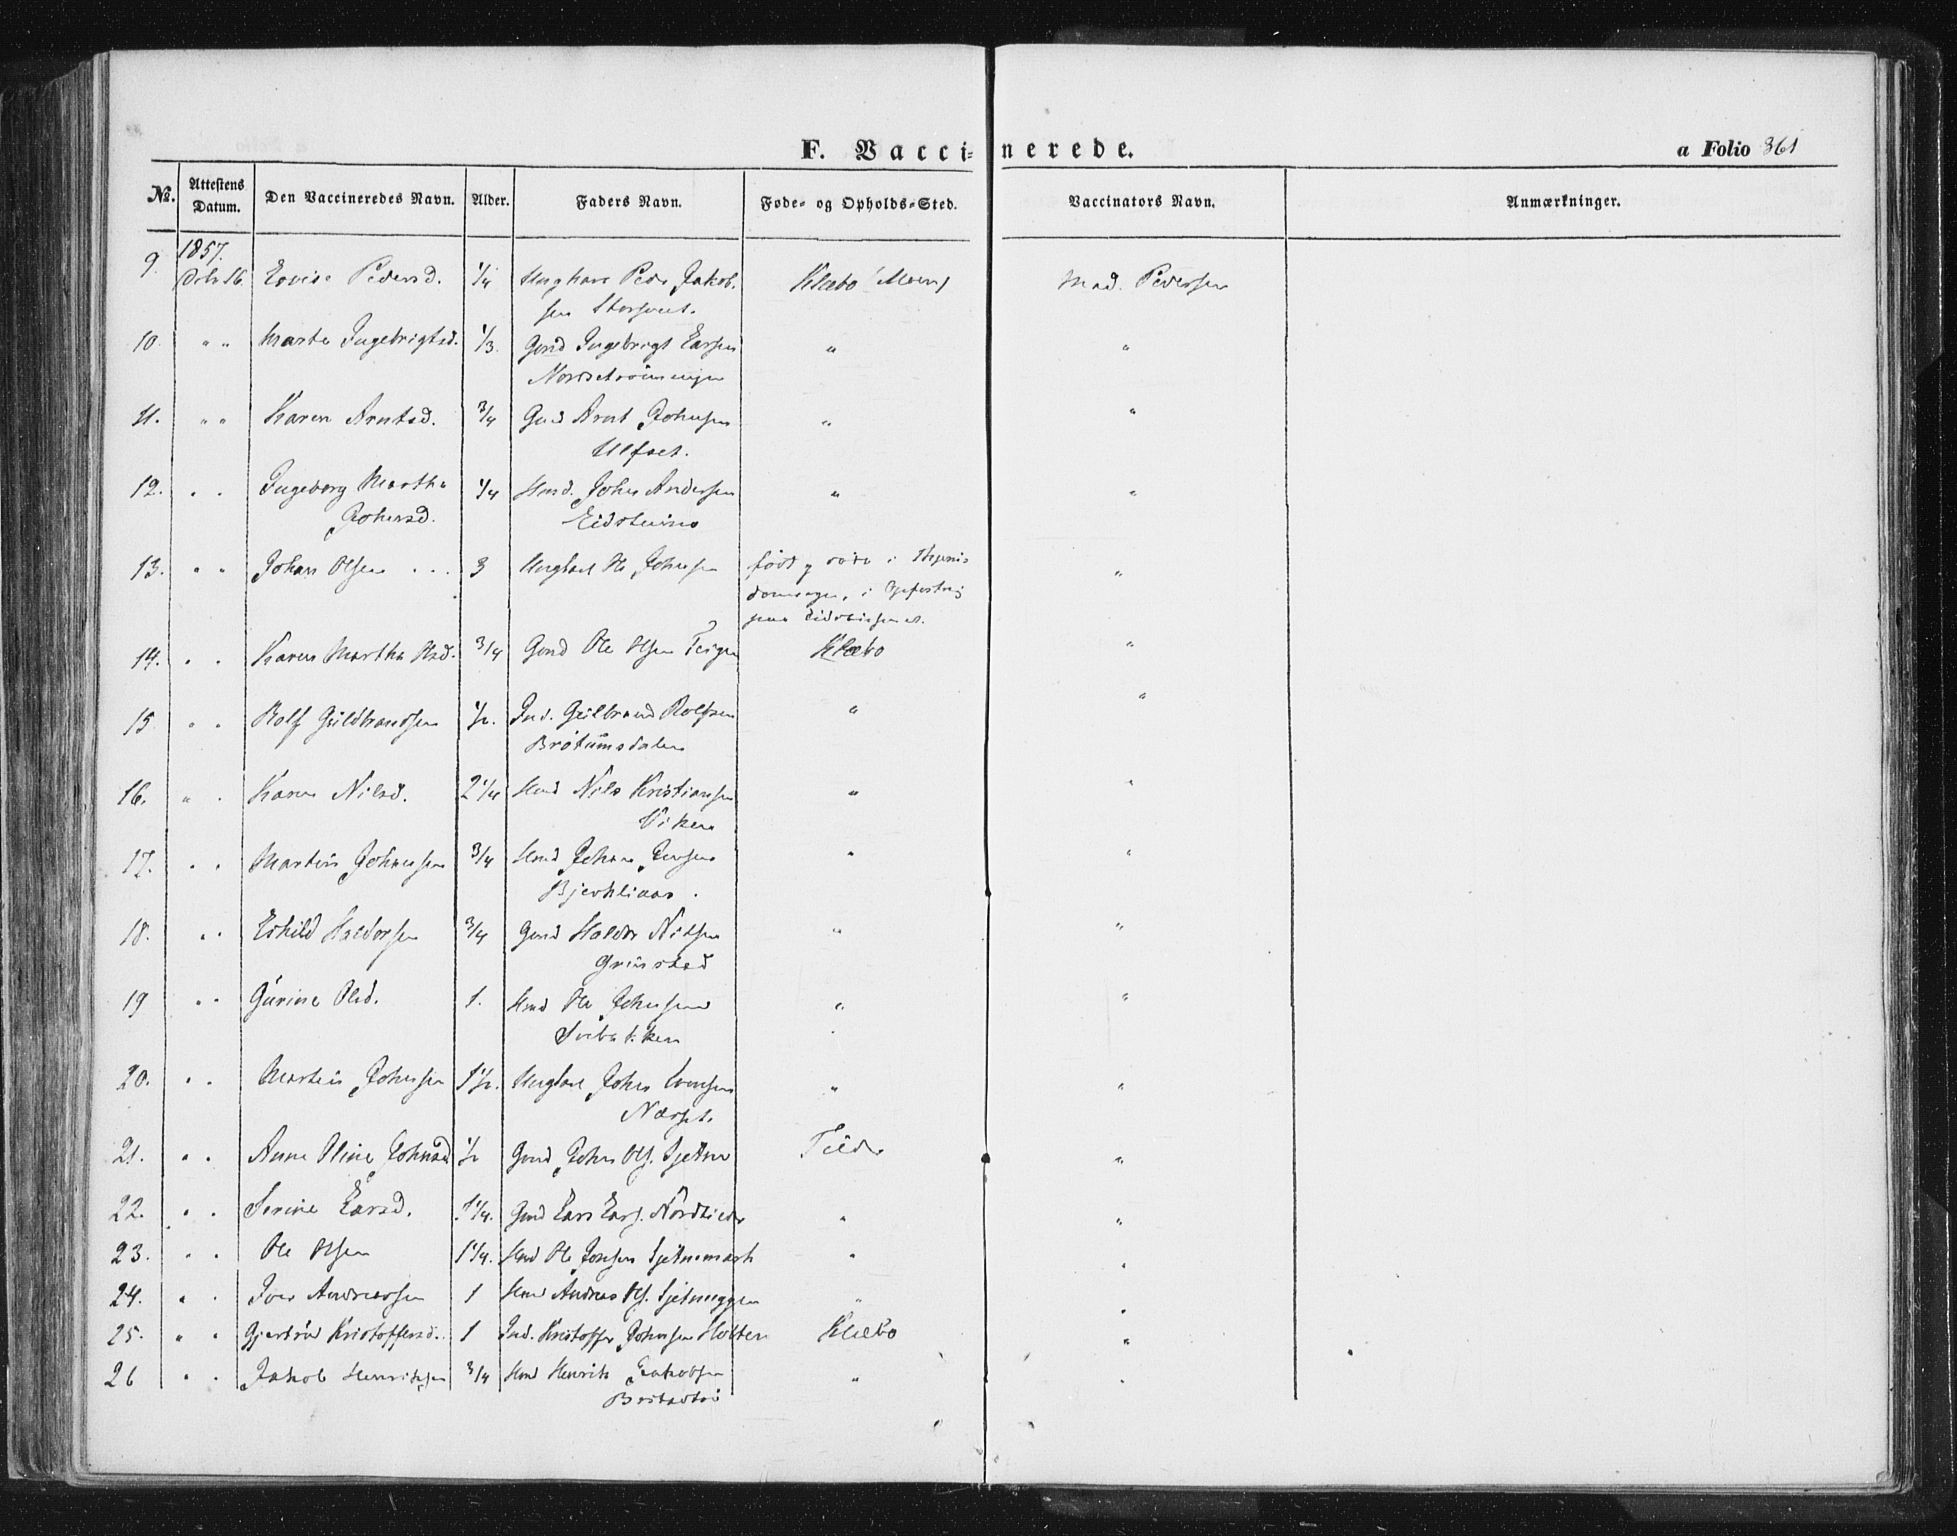 F. Vaccinerede.
a Folio 361
No. Attestens Datum. Den Vaccineredes Navn. Alder. Faders Navn. Føde- og Opholds-Sted. Vaccinators Navn. Anmærkninger.
1857.
9. 16. Lovise Pedersd. 1/4 Ungkarl Peder Jakob- Klæbo Mad. Pedersen
sen
10. " " Marta Ingebrigtsd. 1/3. Gmd Ingebrigt Larsen " "
11. " " Karen Arntsd. 3/4 Gmd Arnt Johnsen " "
Ulfset.
12. " " Ingeborg Martha 1/4 Hmd. John Andersen " "
Johnsd.
13. " " Johan Olsen 3 Ungkarl Ole Johnsen født "
14. " " Karen Martha Olsd. 3/4 Gmd Ole Olsen Teigen Klæbo "
15 " " Rolf Guldbrandsen 1/2. Ind. Gulbrand Rolfsen " "
Brøtumsdalen
16. " " Karen Nilsd. 2 1/4 Hmd Nils Kristiansen " "
Viken
17. " " Martin Johansen 3/4 Hmd Johan Jensen " "
Bjerkliaas
18. " " Eskild Haldorsen 3/4 Gmd Haldor Nilsen " "
Grinstad
19 " " Gurine Olsd. 1. Hmd Ole Johnsen " "
20. " " Martin Johnsen 1 1/2. Ungkarl John " "
21. " " Anne Oline Johnsd 1/2 Gmd John Ols. Sjetne Tiller "
22. " " Serine Larsd. 1 1/4. Gmd Lars Lars. " "
23. " " Ole Olsen 1 1/4. Hmd Ole Jonsen Sjetnemark " "
24. " " Iver Andreassen 1 Hmd Andreas Ols. " "
25. " " Gjertrud Kristoffersd. 1 Ind. Kristoffer Johnsen Holten Klæbo "
26 " " Jakob Henriksen 3/4 Hmd Henrik Jakobsen " "